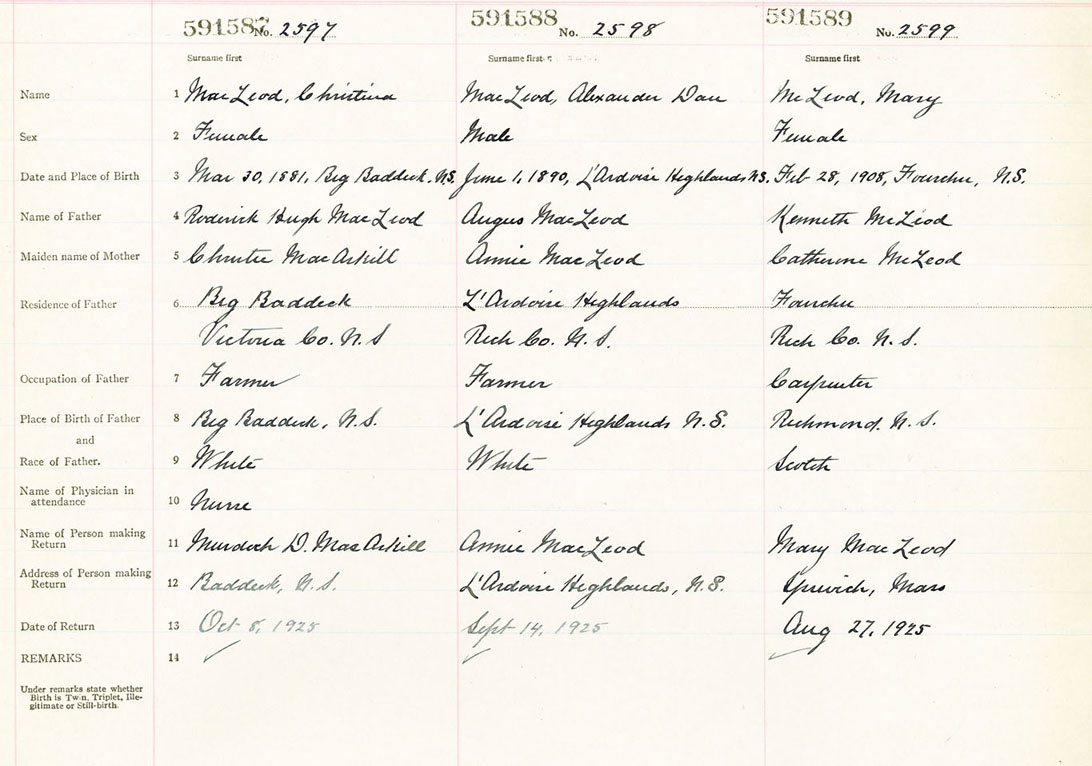 591587 No. 2597 591588 No. 2598 591589 No. 2599
Surname first Surname first Surname first
Name 1 MacLeod, Christina MacLeod, Alexander Dan McLeod, Mary
Sex 2 Female Male Female
Date and Place of Birth 3 Mar 30, 1881, Big Baddeck, N.S. June 1, 1890, L'Ardoise Highlands N.S. Feb 28, 1908, Fourchu, N.S.
Name of Father 4 Roderick Hugh MacLeod Angus MacLeod Kenneth McLeod
Maiden name of Mother 5 Christie MacAskill Annie MacLeod Catherine McLeod
Residence of Father 6 Big Baddeck L'Ardoise Highlands Fourchu
Victoria Co. N.S Rich Co. N.S. Rich Co. N.S.
Occupation of Father 7 Farmer Farmer Carpenter
Place of Birth of Father 8 Big Baddeck, N.S. L'Ardoise Highlands N.S. Richmond. N.S.
and
Race of Father. 9 White White Scotch
Name of Physician in
attendance 10 Nurse
Name of Person making
Return 11 Murdoch D. MacAskill Annie MacLeod Mary MacLeod
Address of Person making
Return 12 Baddeck, N.S. L'Ardoise Highlands, N.S. Ipswich, Mass
Date of Return 13 Oct 8, 1925 Sept 14, 1925 Aug 27, 1925
REMARKS 14
Under remarks state whether
Birth is Twin, Triplet, Ille-
gitimate or Still-birth.